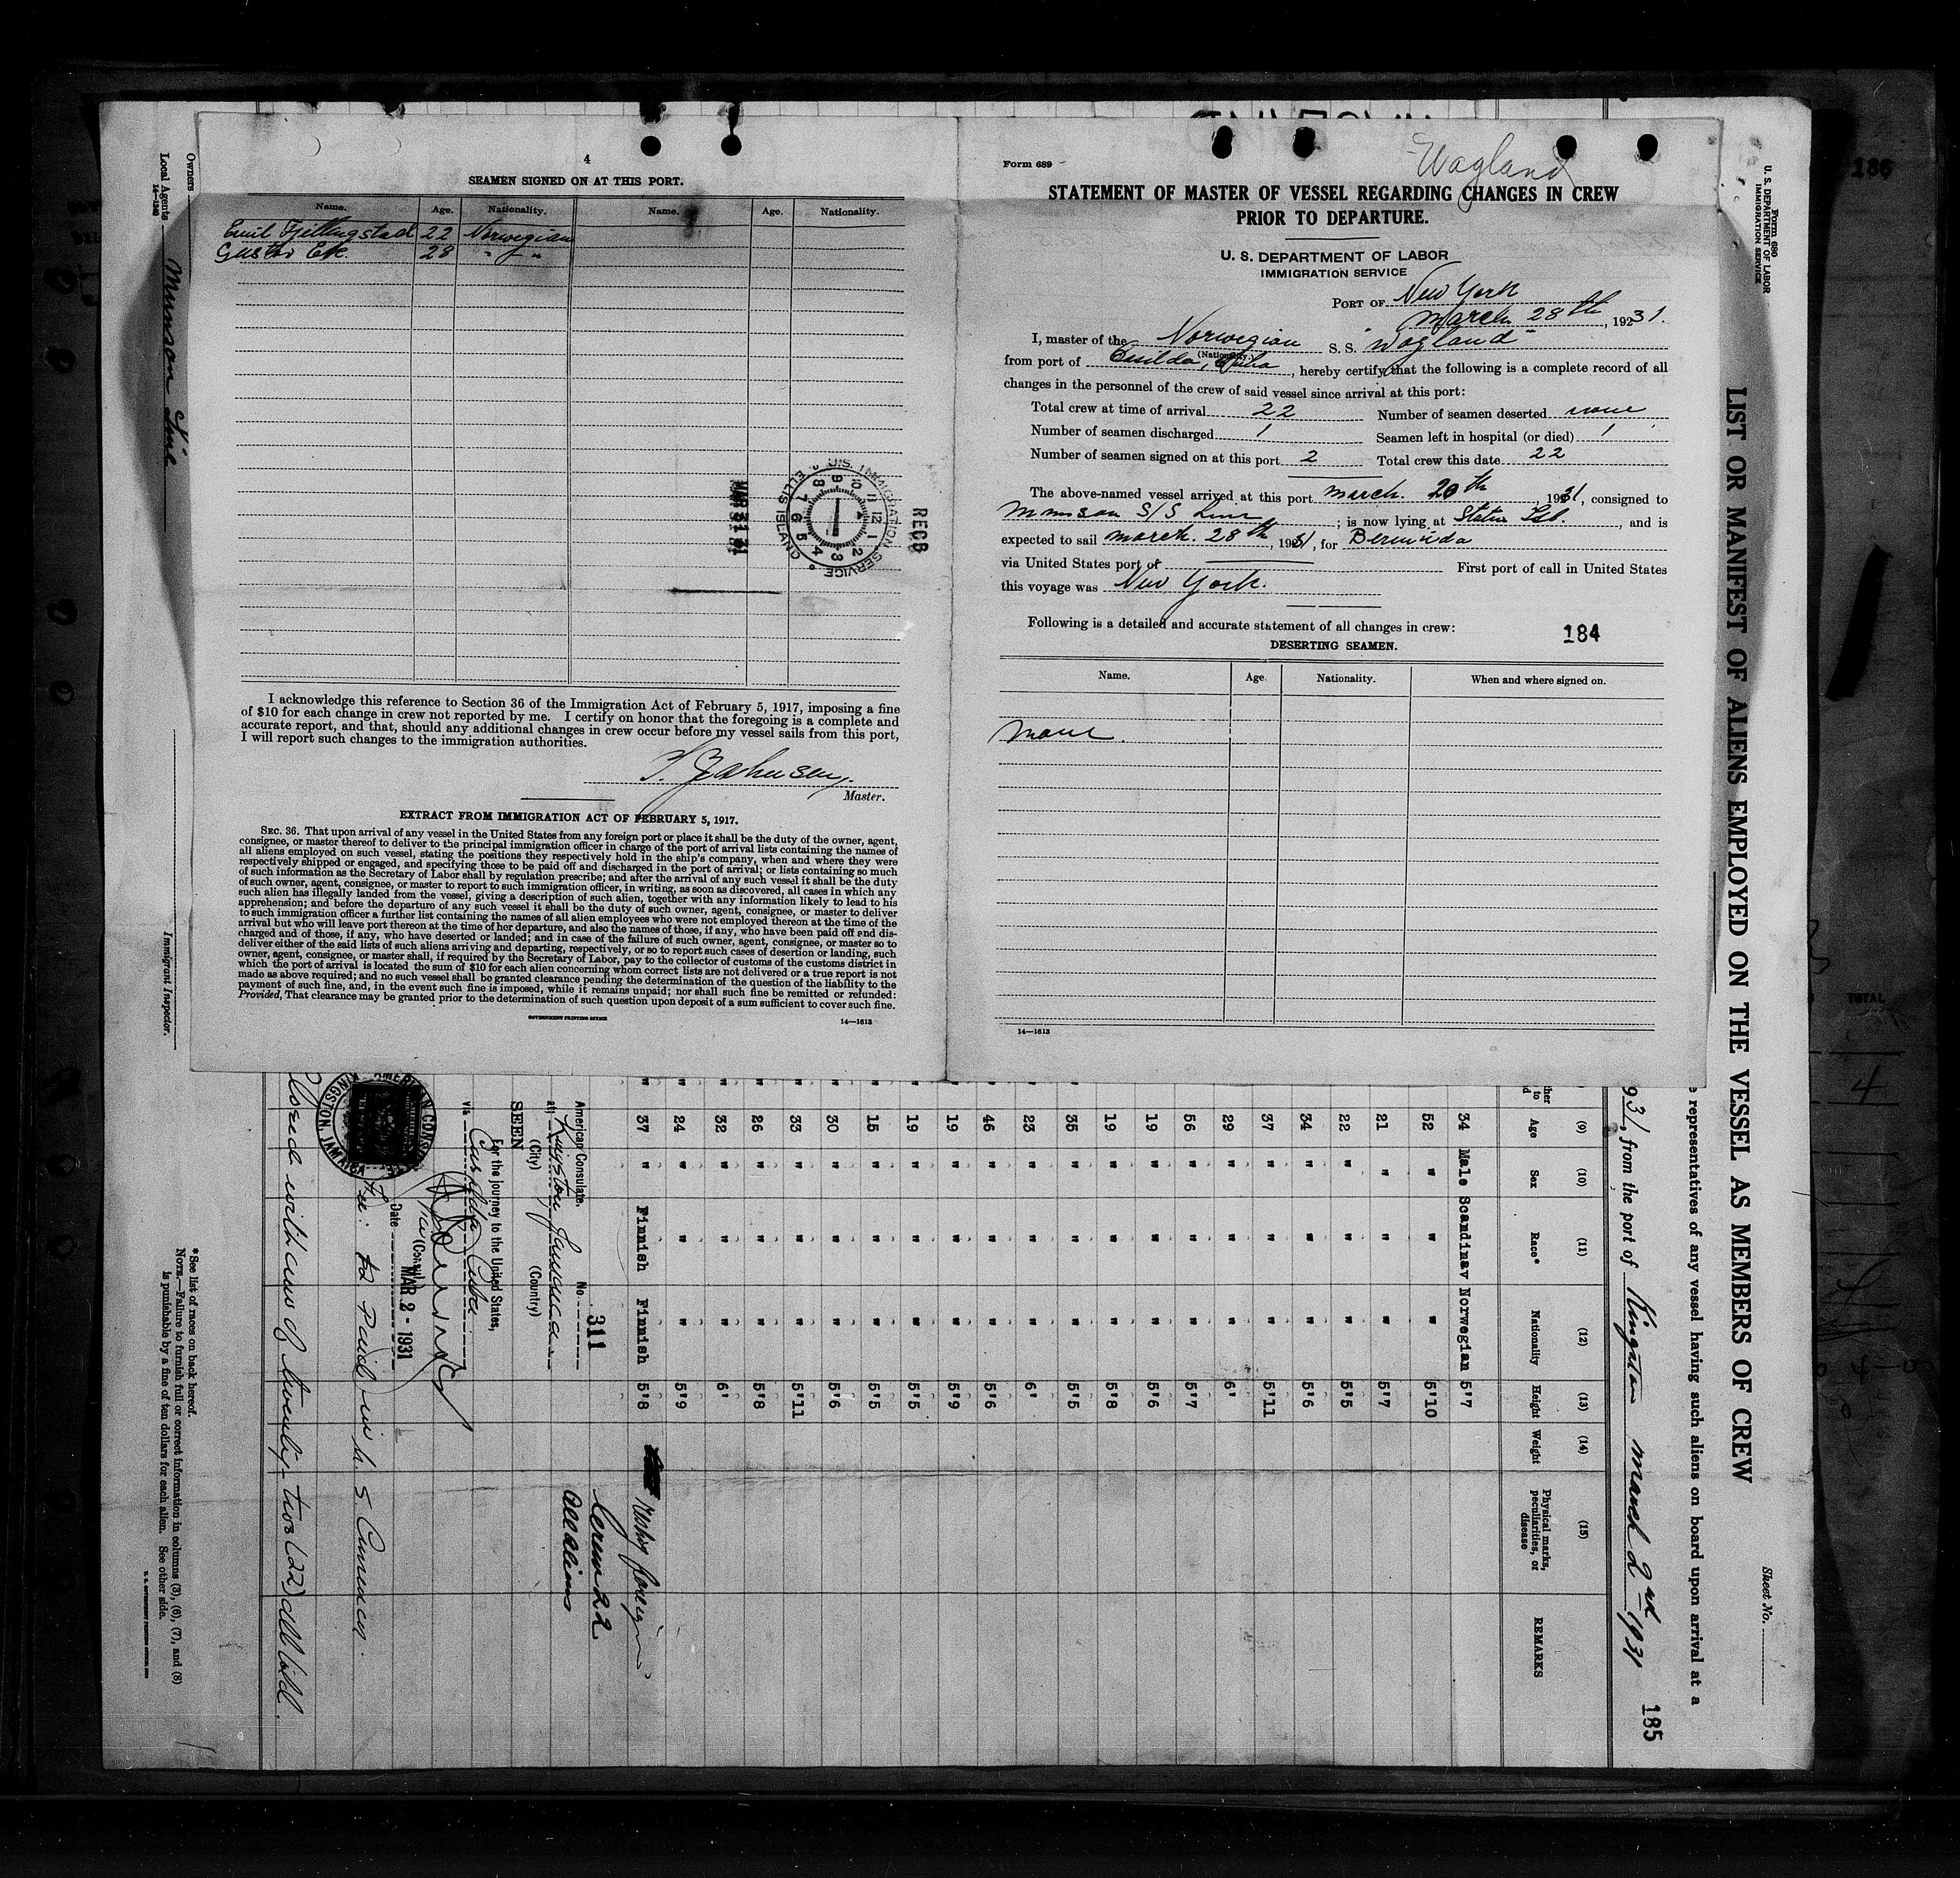 4
SEAMEN SIGNED ON AT THIS PORT.
Name. Age. Nationality. Name. Age. Nationality.
Emil Fjellingstad 22 Norwegian
Gustav Ek. 28 " "
U.S. IMMIGRATION SERVICE ELLIS ISLAND
MAR 31 31
REC'D
I acknowledge this reference to Section 36 of the Immigration Act of February 5, 1917, imposing a fine
of $10 for each change in crew not reported by me. I certify on honor that the foregoing is a complete and
accurate report, and that, should any additional changes in crew occur before my vessel sails from this port,
I will report such changes to the immigration authorities.
Master.
EXTRACT FROM IMMIGRATION ACT OF FEBRUARY 5, 1917.
SEC. 36. That upon arrival of any vessel in the United States from any foreign port or place it shall be the duty of the owner, agent,
consignee, or master thereof to deliver to the principal immigration officer in charge of the port of arrival lists containing the names of
all aliens employed on such vessel, stating the positions they respectively hold in the ship's company, when and where they were
respectively shipped or engaged, and specifying those to be paid off and discharged in the port of arrival; or lists containing so much
of such information as the Secretary of Labor shall by regulation prescribe; and after the arrival of any such vessel it shall be the duty
of such owner, agent, consignee, or master to report to such immigration officer, in writing, as soon as discovered, all cases in which any
such alien has illegally landed from the vessel, giving a description of such alien, together with any information likely to lead to his
apprehension; and before the departure of any such vessel it shall be the duty of such owner, agent, consignee, or master to deliver
to such immigration officer a further list containing the names of all alien employees who were not employed thereon at the time of the
arrival but who will leave port thereon at the time of her departure, and also the names of those, if any, who have been paid off and dis-
charged and of those, if any, who have deserted or landed; and in case of the failure of such owner, agent, consignee, or master so to
deliver either of the said lists of such aliens arriving and departing, respectively, or so to report such cases of desertion or landing, such
owner, agent, consignee, or master shall, if required by the Secretary of Labor, pay to the collector of customs of the customs district in
which the port of arrival is located the sum of $10 for each alien concerning whom correct lists are not delivered or a true report is not
made as above required; and no such vessel shall be granted clearance pending the determination of the question of the liability to the
payment of such fine, and, in the event such fine is imposed, while it remains unpaid; nor shall such fine be remitted or refunded:
Provided, That clearance may be granted prior to the determination of such question upon deposit of a sum sufficient to cover such fine.
GOVERNMENT PRINTING OFFICE
14—1613
Form 689
Wagland
STATEMENT OF MASTER OF VESSEL REGARDING CHANGES IN CREW
PRIOR TO DEPARTURE.
U. S. DEPARTMENT OF LABOR
IMMIGRATION SERVICE
PORT OF New York
March 28th, 1931.
I, master of the Norwegian S. S. "Wagland"
(Nationality.)
from port of Casilda, Cuba, hereby certify that the following is a complete record of all
changes in the personnel of the crew of said vessel since arrival at this port:
Total crew at time of arrival 22 Number of seamen deserted none
Number of seamen discharged 1 Seamen left in hospital (or died) 1
Number of seamen signed on at this port 2 Total crew this date 22
The above-named vessel arrived at this port March. 20th, 1931, consigned to
Munson S/S Line; is now lying at Staten Isl., and is
expected to sail March. 28th, 1931, for Bermuda
via United States port of First port of call in United States
this voyage was New York.
Following is a detailed and accurate statement of all changes in crew:
184
DESERTING SEAMEN.
Name. Age. Nationality. When and where signed on.
None.
14—1613
Form 680
U. S. DEPARTMENT OF LABOR
IMMIGRATION SERVICE
Sheet No.
LIST OR MANIFEST OF ALIENS EMPLOYED ON THE VESSEL AS MEMBERS OF CREW
representatives of any vessel having such aliens on board upon arrival at a
931, from the port of Kingston March 2nd 1931
185
186
(9) (10) (11) (12) (13) (14) (15)
Age Sex Race* Nationality Height Weight Physical marks, peculiarities, or disease REMARKS
34 Male Scandinav Norwegian 5'7
52 " " " 5'10
21 " " " 5'7
22 " " " 5'5
34 " " " 5'6
37 " " " 5'11
29 " " " 6'
56 " " " 5'7
19 " " " 5'6
19 " " " 5'8
35 " " " 5'5
23 " " " 6'
46 " " " 5'6
19 " " " 5'9
19 " " " 5'5
15 " " " 5'5
30 " " " 5'6
33 " " " 5'11
26 " " " 5'8
32 " " " 6'
24 " " " 5'9
37 " Finnish Finnish 5'8
Crew 22
All Aliens
American Consulate.
No. 311
at Kingston Jamaica
(City) (Country)
SEEN
For the journey to the United States,
via Casilda Cuba
(Consul)
Date MAR 2 - 1931
AMERICAN CONSULATE KINGSTON, JAMAICA
Fee: $2 Paid in U. S Currency.
Closed with line of twenty-two (22) all told.
*See list of races on back hereof.
NOTE.—Failure to furnish full or correct information in columns (3), (6), (7), and (8)
is punishable by a fine of ten dollars for each alien. See other side.
Immigrant Inspector.
Owners
Local Agents Munson Line
14—1240
TOTAL
4